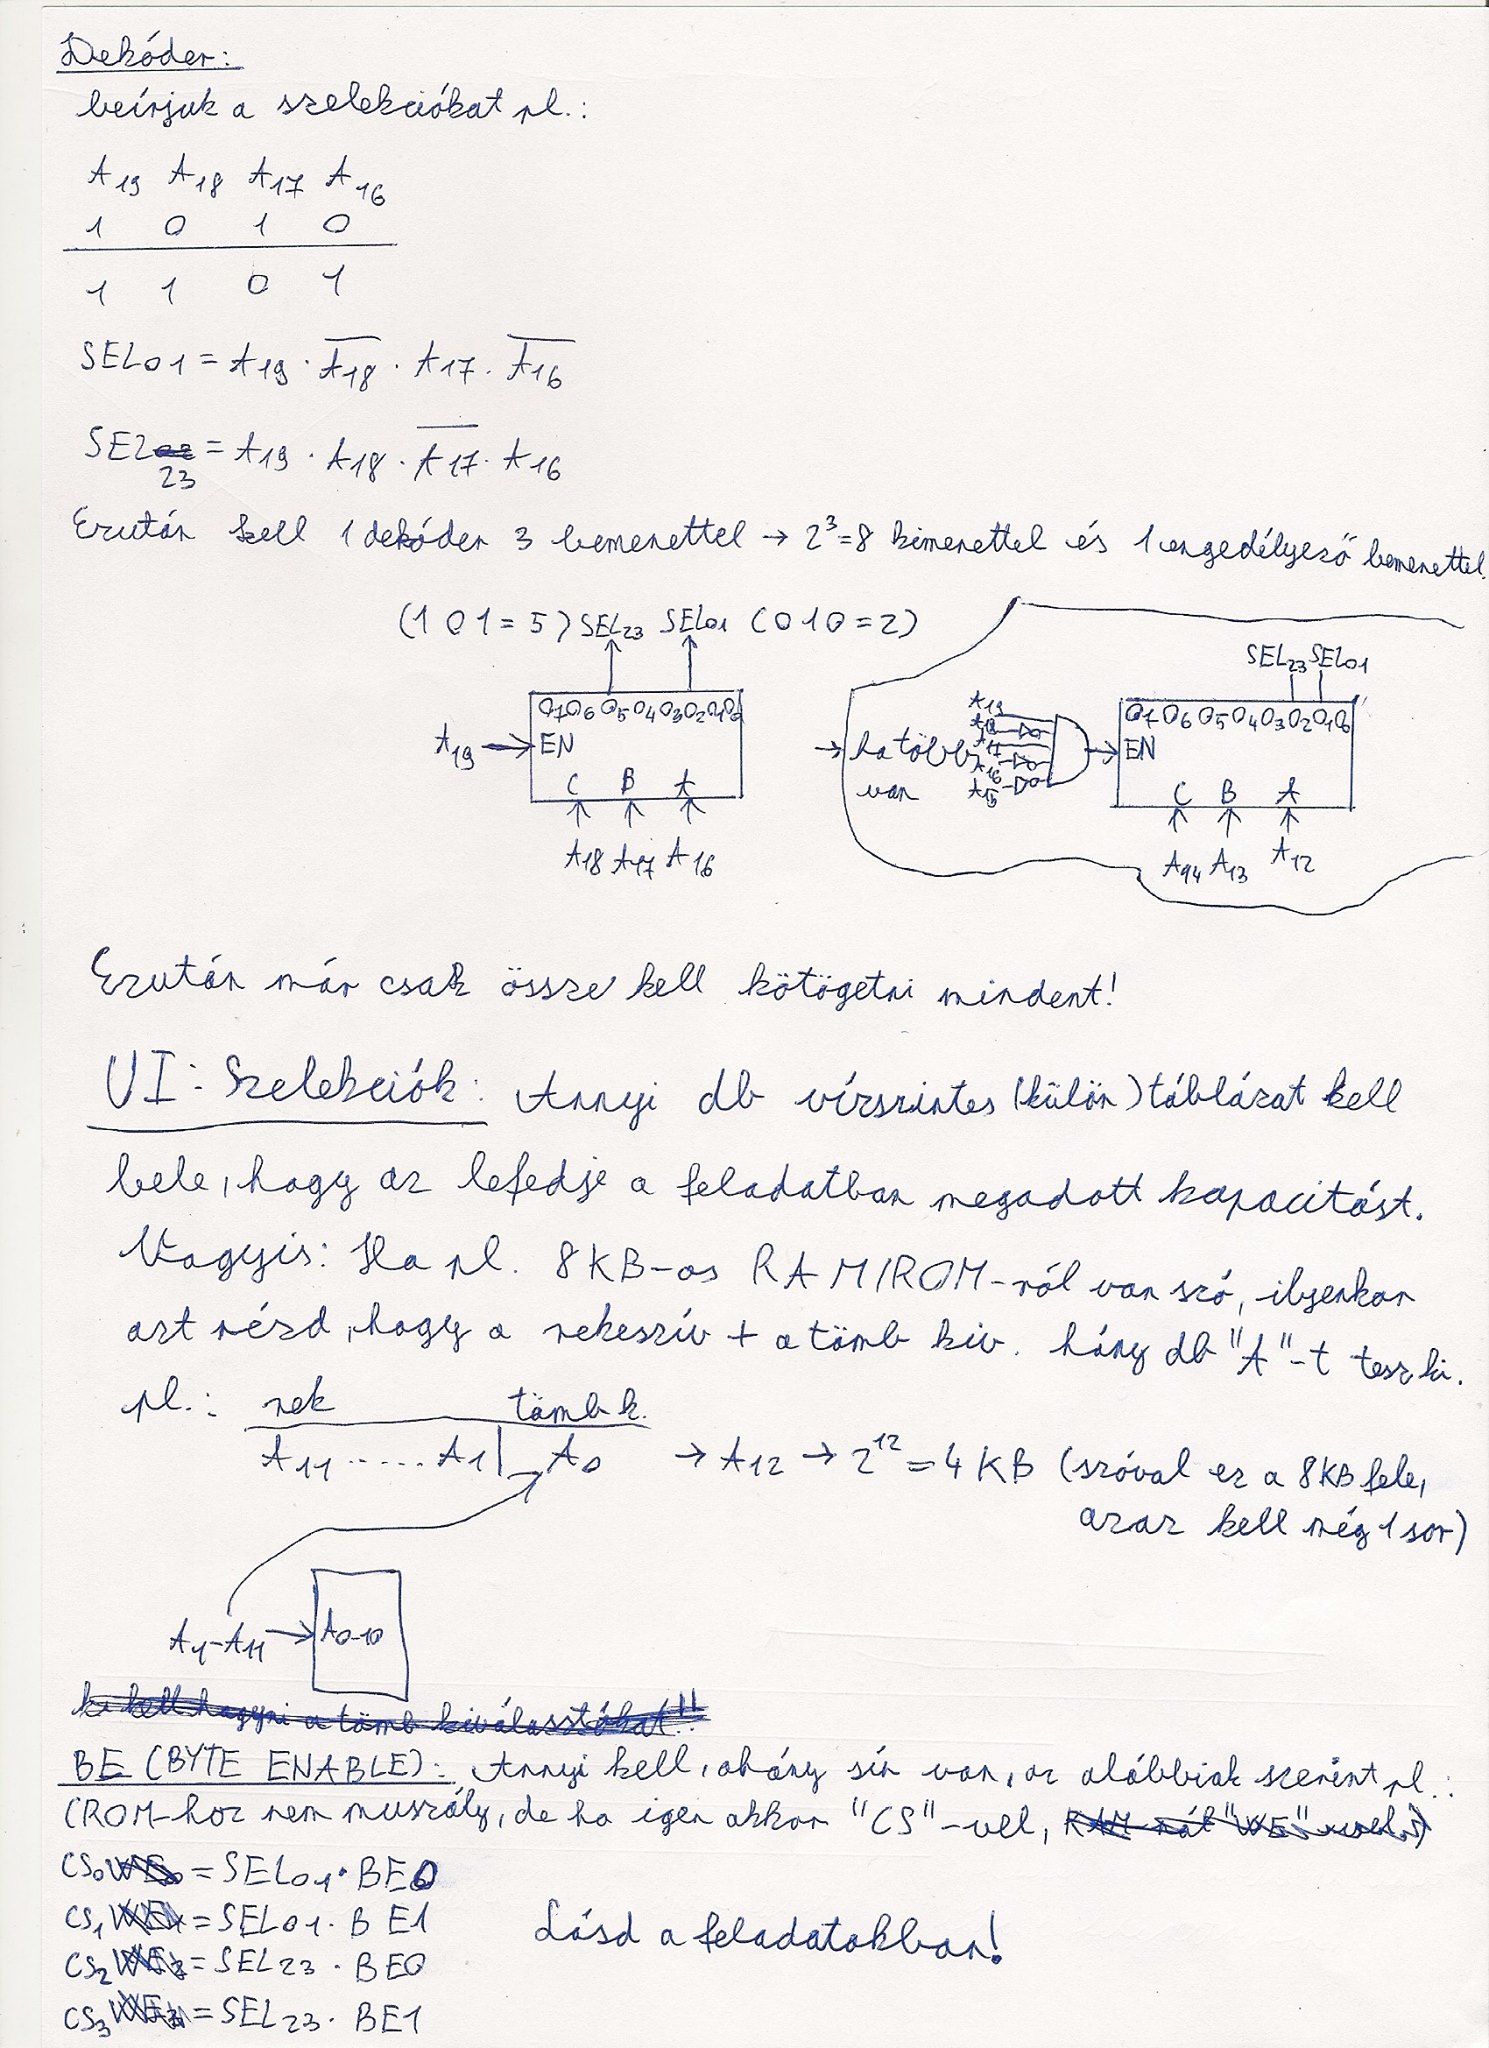 Dekóder:
beírjuk a szelekciókat pl.:
A19 A18 A17 A16
1 0 1 0
1 1 0 1
SEL01 = A19 · A̅1̅8̅ · A17 · A̅1̅6̅
SEL23 = A19 · A18 · A̅1̅7̅ · A16
Ezután kell 1 dekóder 3 bemenettel → 2³=8 kimenettel és 1 engedélyező bemenettel.
(1 0 1 = 5) SEL23 SEL01 (0 1 0 = 2)
SEL23 SEL01
O7 O6 O5 O4 O3 O2 O1 O0
A19 → EN
C B A
A18 A17 A16
→ ha több van
A19
A18
A17
A16
A15
O7 O6 O5 O4 O3 O2 O1 O0
EN
C B A
A14 A13 A12
Ezután már csak össze kell kötögetni mindent!
UI: Szelekciók: Annyi db vízszintes (külön) táblázat kell
bele, hogy az lefedje a feladatban megadott kapacitást.
Vagyis: Ha pl. 8KB-os RAM/ROM-ról van szó, ilyenkor
azt nézd, hogy a rekeszív + a tömb kiv. hány db "A"-t tesz ki.
pl.: rek tömb k.
A11 ..... A1 | A0 → A12 → 2¹² = 4 KB (szóval ez a 8KB fele,
azaz kell még 1 sor)
A1-A11 → A0-10
ki kell hagyni a tömb kiválasztókat!!
BE (BYTE ENABLE): Annyi kell, ahány sín van, az alábbiak szerint pl.:
(ROM-hoz nem muszály, de ha igen akkor "CS"-vel, RAM-nál "WE"
CS0 = SEL01 · BE0
CS1 = SEL01 · BE1
CS2 = SEL23 · BE0
CS3 = SEL23 · BE1
Lásd a feladatokban!